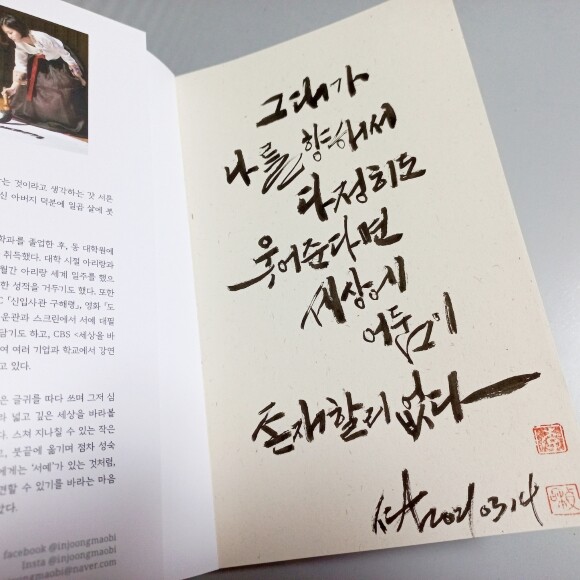 는 것이라고 생각하는 갓 서른
신 아버지 덕분에 일곱 살에 붓
학과를 졸업한 후, 동 대학원에
취득했다. 대학 시절 아리랑과
월간 아리랑 세계 일주를 했으
한 성적을 거두기도 했다. 또한
C 「신입사관 구해령」, 영화 「도
운관과 스크린에서 서예 대필
담기도 하고, CBS <세상을 바
여 여러 기업과 학교에서 강연
고 있다.
은 글귀를 따다 쓰며 그저 심
와 넓고 깊은 세상을 바라볼
다. 스쳐 지나칠 수 있는 작은
고, 붓끝에 옮기며 점차 성숙
에게는 '서예'가 있는 것처럼,
면할 수 있기를 바라는 마음
았다.
facebook @injoongmaobi
Insta @injoongmaobi
ongmaobi@naver.com
그대가
나를 향해서
다정히도
웃어준다면
세상에
어둠이
존재할리 없다
2021 03.14